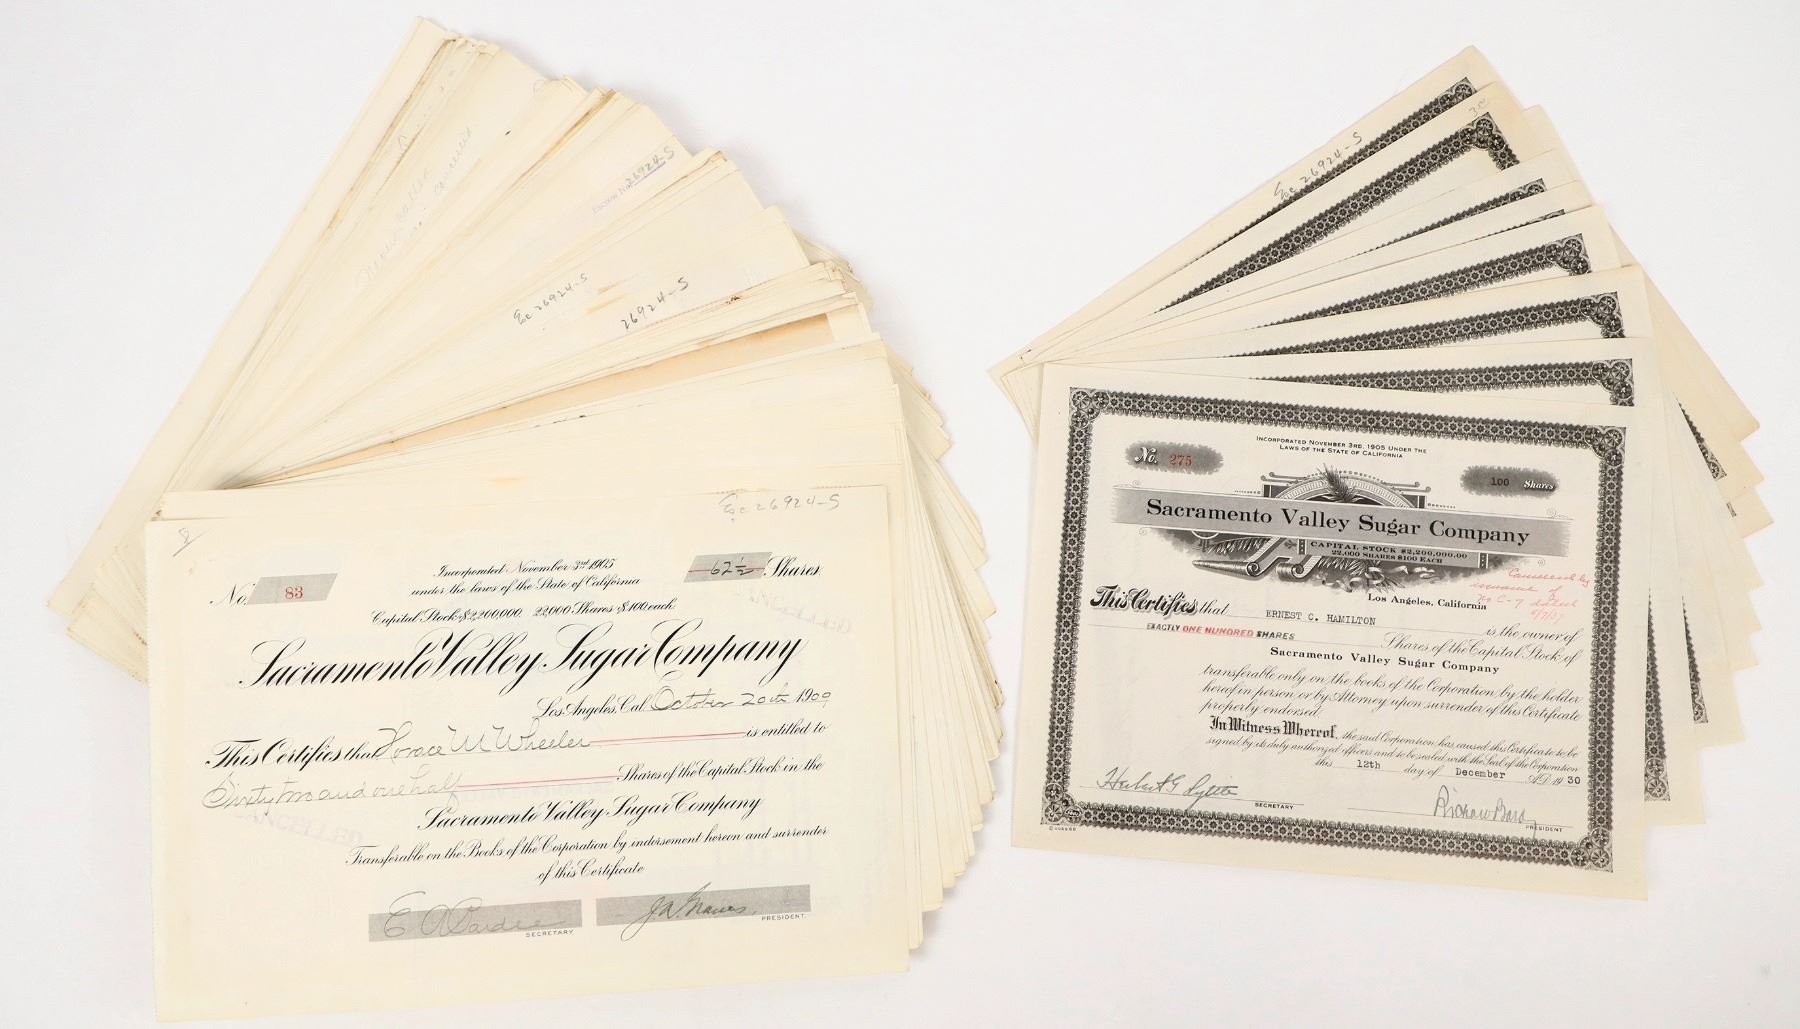 Ec 26924-S
No. 83
Incorporated November 3rd 1905
under the laws of the State of California
62 1/2 Shares
Capital Stock $2,200,000. 22000 Shares $100 each.
Sacramento Valley Sugar Company
Los Angeles, Cal. October 20th 1909
This Certifies that Horace M Wheeler is entitled to
Sixty two and one half Shares of the Capital Stock in the
Sacramento Valley Sugar Company
CANCELLED
Transferable on the Books of the Corporation by indorsement hereon and surrender
of this Certificate
E A Pardee
SECRETARY
J. A. Graves.
PRESIDENT.
CANCELLED
26924-S
Ec 26924-S
26924-S
Ec 26924-S
INCORPORATED NOVEMBER 3RD, 1905 UNDER THE
LAWS OF THE STATE OF CALIFORNIA
No. 275
100 Shares
Sacramento Valley Sugar Company
CAPITAL STOCK $2,200,000.00
22,000 SHARES $100 EACH
Los Angeles, California
Cancelled by
issuance of
No C-7 dated
This Certifies that ERNEST C. HAMILTON is the owner of
EXACTLY ONE HUNDRED SHARES Shares of the Capital Stock of
Sacramento Valley Sugar Company
transferable only on the books of the Corporation by the holder
hereof in person or by Attorney upon surrender of this Certificate
properly endorsed.
In Witness Whereof, the said Corporation has caused this Certificate to be
signed by its duly authorized officers and to be sealed with the Seal of the Corporation
this 12th day of December A.D. 1930
SECRETARY
Richard Bard
PRESIDENT